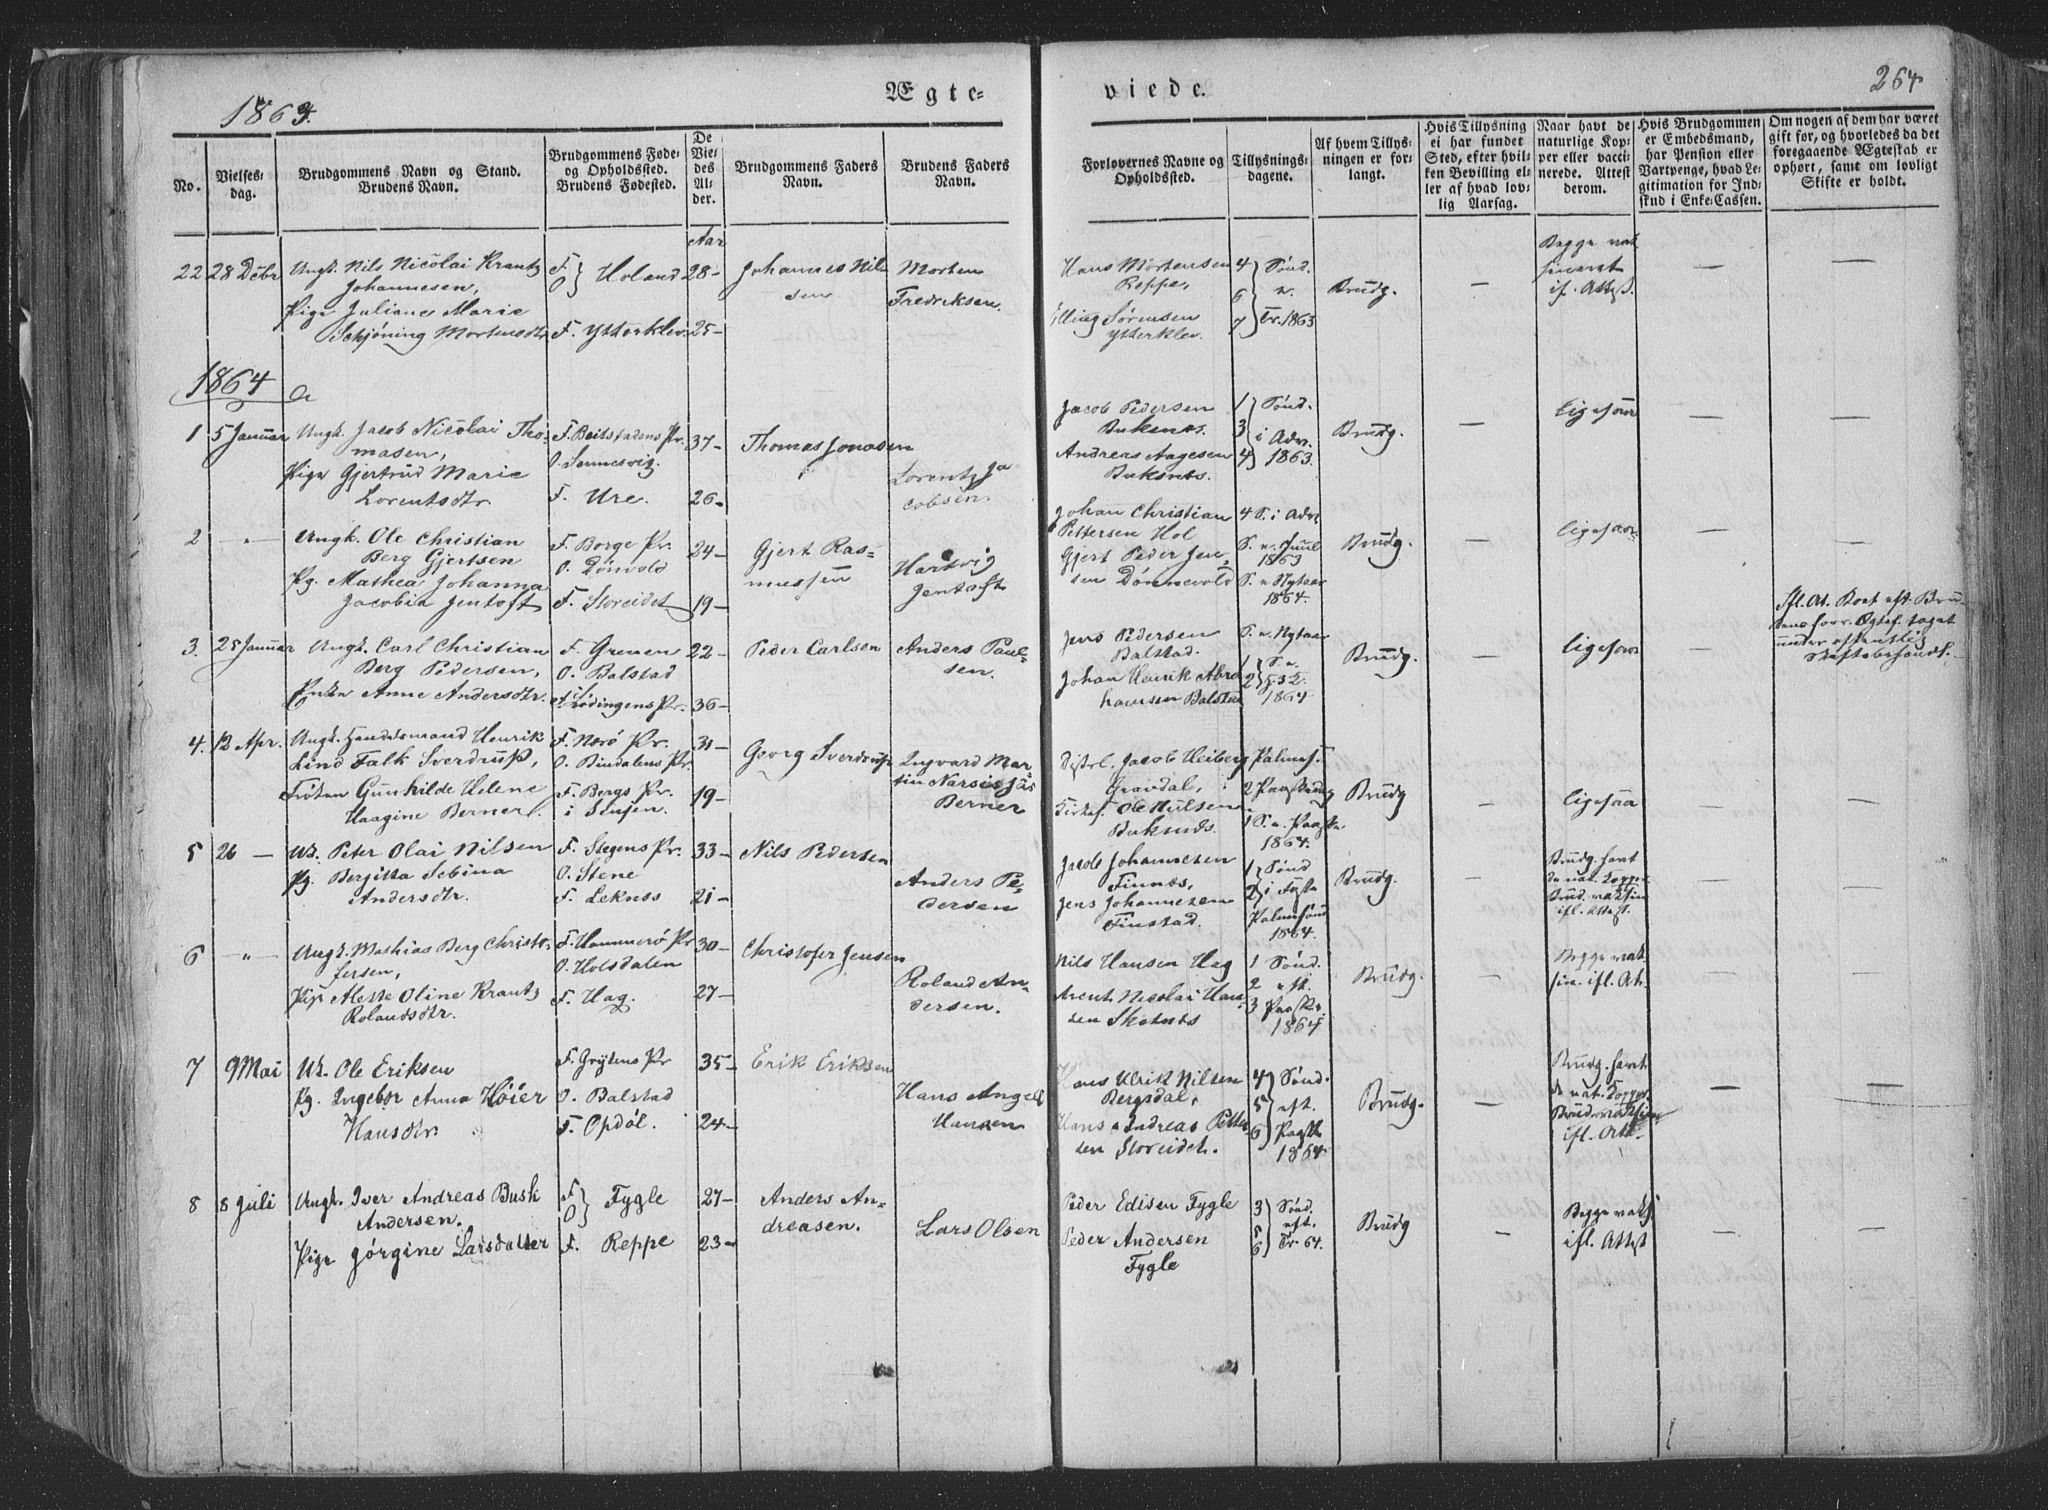 1864.
Ægte-
viede.
264
No.
Vielses-
dag.
Brudgommens Navn og Stand.
Brudens Navn.
Brudgommens Føde-
og Opholdssted.
Brudens Fødested.
De
Vie-
des
Al-
der.
Brudgommens Faders
Navn.
Brudens Faders
Navn.
Forlovernes Navne og
Opholdssted.
Tillysnings-
dagene.
Af hvem Tillys-
ningen er for-
langt.
Hvis Tillysning
ei har fundet
Sted, efter hvil-
ken Bevilling el-
ler af hvad lov-
lig Aarsag.
Naar havt de
naturlige Kop-
per eller vacci-
nerede. Attest
derom.
Hvis Brudgommen
er Embedsmand,
har Pension eller
Vartpenge, hvad Le-
gitimation for Ind-
skud i Enke-Cassen.
Om nogen af dem har været
gift før, og hvorledes da det
foregaaende Ægteskab er
ophørt, samt om lovligt
Skifte er holdt.
Aar
22 28 Decbr Ungk. Nils Nicolai Krantz
Johannesen,
Pige Juliane Marie
Schjöning Mortensdtr
F. O. } Holand 28-
F. Ytterklev. 25-
Johannes Nil-
sen
Morten
Fredriksen.
Hans Mortensen
Reppe,
Elling Sörensen
Ytterklev.
4 6 7 } Sönd. e. Tr. 1863
Brudg.
—
Begge vak
sineret
if. Attest.
— —
1864
1 5 Januar Ungk. Jacob Nicolai Tho-
masen,
Pige Gjertrud Marie
Lorentsdtr.
F. Beitstadens Pr.
O. Sennesvig.
F. Ure.
37-
26-
Thomas Jonasen
Lorentz Ja
cobsen.
Jacob Pedersen
Buksnes.
Andreas Aagesen
Buksnes.
1 3 4 } Sönd. i Adv. 1863.
Brudg.
—
ligesaa
— —
2 —"— Ungk. Ole Christian
Berg Gjertsen
Pg. Mathea Johanna
Jacobia Jentoft
F. Borge Pr.
O. Dönvold
F. Storeidet
24-
19-
Gjert Ras-
mussen
Hartvig
Jentoft
Johan Christian
Pettersen Hol
Gjert Peder Jen-
sen Dönnevold
4 S. i Adv
S. e. Juul
1863
S. e Nytaar
1864.
Brudg.
—
ligesaa
— —
3. 25 Januar Ungk. Carl Christian
Berg Pedersen,
Enke Anne Andersdtr.
F. Grenen
O. Balstad
F. Lödingens Pr.
22-
36-
Peder Carlsen
Anders Paul-
sen.
Jens Pedersen
Balstad.
Johan Henrik Abra
hamsen Balstad
S. e. Nytaar
1 2 } S. e.
1864
Brudg.
—
ligesaa
—
Ifl. At.
under offentlig
Skiftebehandl.
4. 12 Apr. Ungk. Handelsmand Henrik
Lind Falk Sverdrup,
Fröken Gunhilde Helene
Haagine Berner.
F. Nærö Pr.
O. Bindalens Pr.
F. Bergs Pr.
i Senjen.
31-
19-
Georg Sverdrup
Ingvard Mar
tin Narsis Jås
Berner
Distrl. Jacob Heiberg
Gravdal,
Kirkes. Ole Nilsen
Buksnes.
Palmes.
2 Paaskedg
1 S. e. Paaske
1864.
Brudg
—
ligesaa
— —
5 26 — Uk. Peter Olai Nilsen
Pg. Bergitta Sebina
Andersdtr.
F. Stegens Pr.
O. Stene
F. Leknes
33-
21-
Nils Pedersen
Anders Pe-
dersen
Jacob Johannesen
Finnes,
Jens Johannesen
Finstad.
1 2 } Sönd i Faste
Palmesönd
1864.
Brudg.
—
Brudg. havt
de nat. Kopper
Brud. vaksin
ifl. Attest.
— —
6 —"— Ungk. Mathias Berg Christo-
fersen,
Pige Alette Oline Krantz
Rolandsdtr.
F. Hammerö Pr
O. Holsdalen
F. Hag.
30-
27-
Christofer Jensen
Roland An-
dersen.
Nils Hansen Hag
Arent Nicolai Han-
sen Skotnes
1 Sönd.
2 eft.
3 Paaske.
1864
Brudg.
—
Begge vak
sin. ifl. At.
— —
7 9 Mai Uk. Ole Eriksen
Pg. Ingebor Anna Höier
Hansdtr.
F. Grytens Pr
O. Balstad
F. Opdöl.
35-
24-
Erik Eriksen
Hans Angel
Hansen
Hans Ulrik Nilsen
Bergsdal,
Hans Andreas Petter
sen Storeidet.
4 5 6 } Sönd. eft. Paaske
1864.
Brudg.
—
Brudg. havt
de nat. Kopper
Brud. vaksin
ifl. Att.
— —
8 8 Juli Ungk. Iver Andreas Bush
Andersen.
Pige Jörgine Larsdatter
F. O. } Fygle
F. Reppe
27-
23-
Anders An-
dreasen.
Lars Olsen
Peder Edisen Fygle
Peder Andersen
Fygle
3 5 6 } Sönd. eft. Tr. 64.
Brudg
—
Begge vaks
ifl. Attest
— —